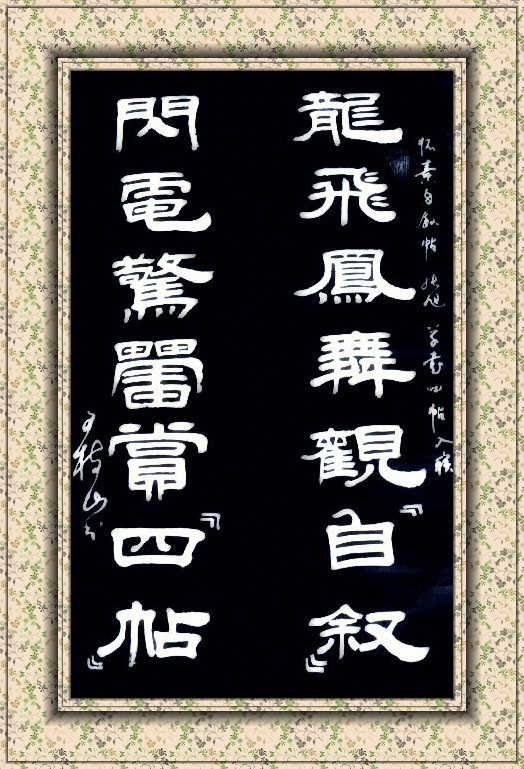 怀素自叙帖 张旭草书四帖入联
龍飛鳳舞觀『自叙』
閃電驚靁賞『四帖』